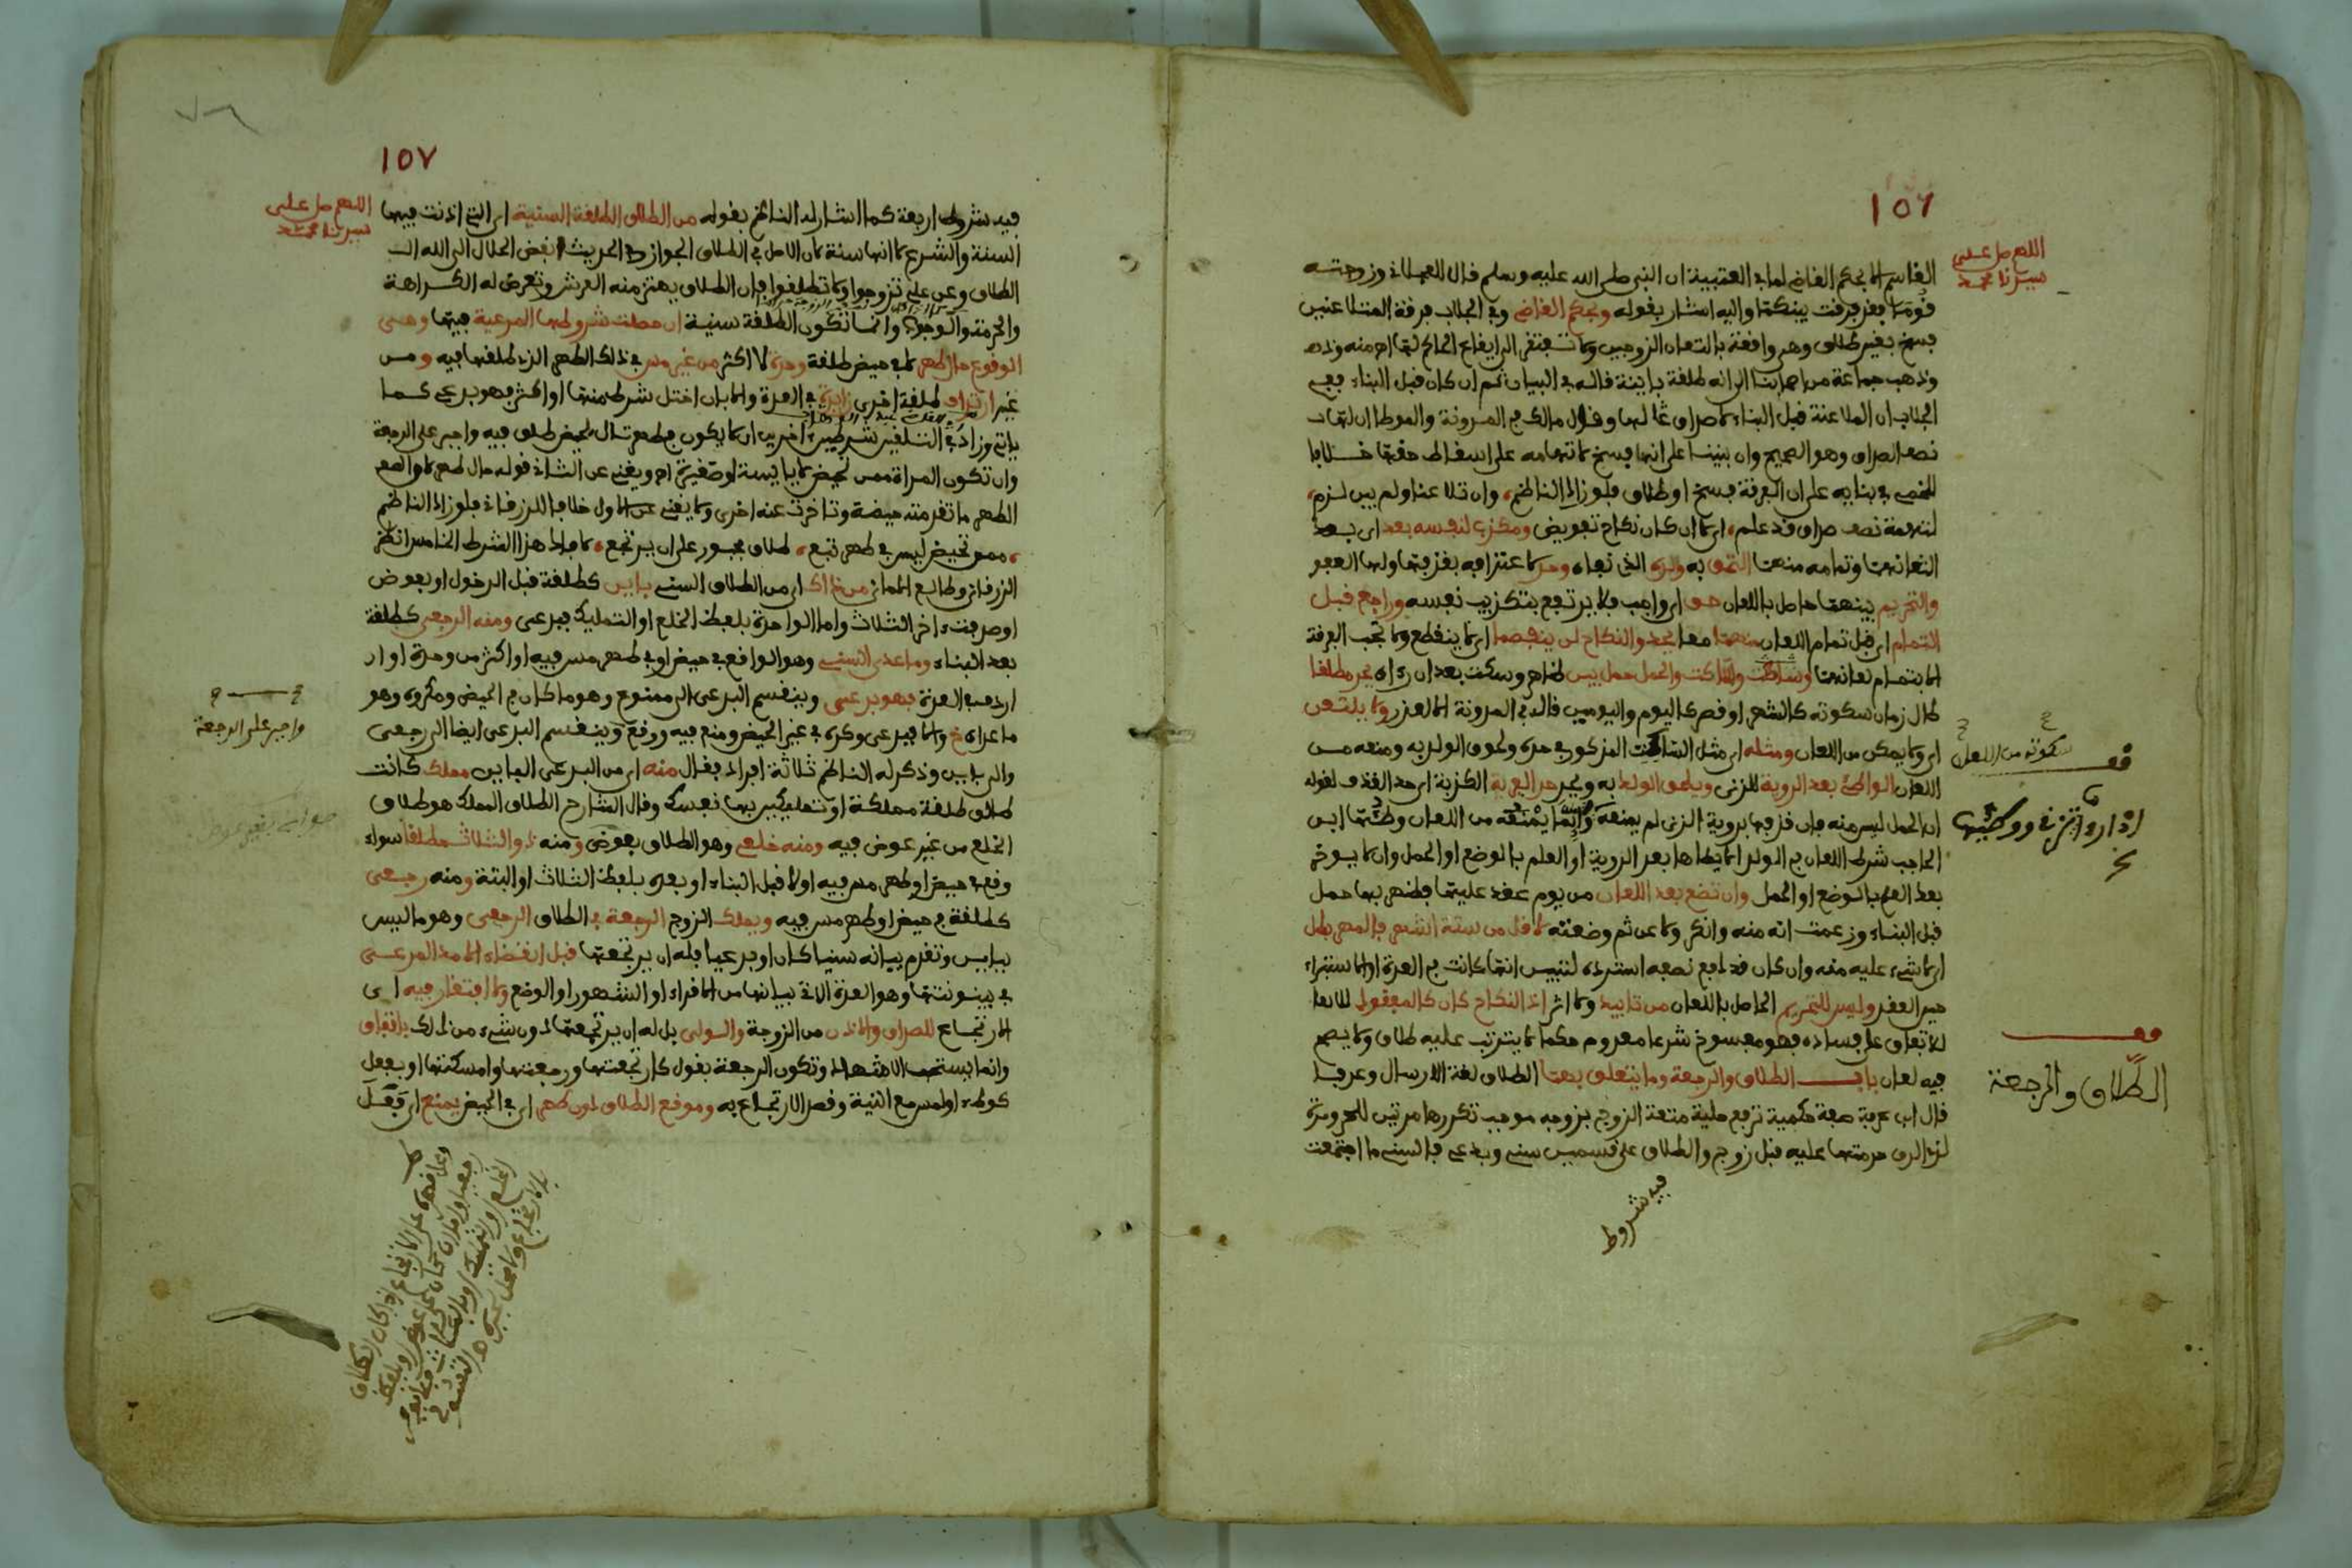 ١٥٦
اللهم صل على
سيدنا محمد
القاسم الا بحكم القاضي لما في العتبية ان النبي صلى الله عليه وسلم قال للعجلاني وزوجته
قوما فقد فرقت بينكما واليه اشار بقوله وبحكم القاضي وفي الجلاب فرقة المتلاعنين
فسخ بغير طلاق وهي واقعة بالتعان الزوجين ولا تفتقر الى ايقاع الحاكم لها اهـ منه
وذهب جماعة من اصحابنا الى انه طلقة باينة قاله في البيان ثم ان كان قبل البناء ففي
الجلاب ان الملاعنة قبل البناء لا صداق لها وقال مالك في المدونة والموطا ان لها
نصف الصداق وهو الصحيح وان بنينا على انها فسخ لاتهامه على اسقاط حقها خلافا
للخمي في بنايه على ان الفرقة فسخ او طلاق فلو زاد الناظم، وان تلاعنا ولم يبن لزم،
لتهمة نصف صداق قد علم، اي الا ان كان نكاح تفويض ومكذب لنفسه بعد اي بعد
التعانهما وتمامه منهما التحق به ولده الذي نفاه وحد لاعترافه بقذفها ولها العفو
والتحريم بينهما حاصل باللعان حق اي واجب فلا يرتفع بتكذيب نفسه وراجع قبل
التمام اي قبل تمام اللعان منهما معا يحد والنكاح لن ينفصما اي لا ينقطع ولا تجب الفرقة
الا بتمام لعانهما وساكت والحمل حمل بين ظاهر وسكت بعد ان رءاه يحد مطلقا
طال زمان سكوته كالشهر او قصر كاليوم واليومين قاله في المدونة الا لعذر ولا يلتعن
اي ولا يمكن من اللعان ومثله اي مثل الساكت المذكور في حده ولحوق الولد به ومنعه من
اللعان الواطئ بعد الروية للزنى ويلحق الولد به ويحد حد الفرية الكذبة اي حد القذف لقوله
ان الحمل ليس منه فان قذفها بروية الزنى لم يمنعه وانما يمنعه من اللعان وطئها ابن
الحاجب شرط اللعان في الولد ان لا يطاها بعد الروية او العلم بالوضع او الحمل وان لا يوخر
بعد العلم بالوضع او الحمل وان تضع بعد اللعان من يوم عقد عليها فظهر بها حمل
قبل البناء وزعمت انه منه وانكر ولاعن ثم وضعته لاقل من ستة اشهر فالمهر بطل
اي لا شيء عليه منه وان كان قد دفع نصفه استرده لتبين انها كانت في العدة او الاستبراء
حين العقد وليس للتحريم الحاصل باللعان من تابيد ولا اثر اذ النكاح كان كالمفقود للاتفا
للاتفاق على فساده فهو مفسوخ شرعا معدوم حكما لا يترتب عليه طلاق ولا يصح
فيه لعان باب الطلاق والرجعة وما يتعلق بهما الطلاق لغة الارسال وعرفا
قال ابن عرفة صفة حكمية ترفع حلية متعة الزوج بزوجه موجب تكررها مرتين للحر ومرة
لذي الرق حرمتها عليه قبل زوج والطلاق على قسمين سني وبدعي فالسني ما اجتمعت
فيه شروط
قف
سكوته من اللعان
اذا رءا تزني ووطئها
قف
الطلاق والرجعة
١٥٧
اللهم صل على
سيدنا محمد
فيه شروط اربعة كما اشار له الناظم بقوله من الطلاق الطلقة السنية اي التي اذنت فيها
السنة والشرع لا انها سنة لان الاصل في الطلاق الجواز وفي الحديث ابغض الحلال الى الله
الطلاق وعن علي تزوجوا ولا تطلقوا فان الطلاق يهتز منه العرش وتعرض له الكراهة
والحرمة والوجوب وانما تكون الطلقة سنية ان حصلت شروطها المرعية فيها وهي
الوقوع حال الطهر لا في حيض طلقة وحدة لا اكثر من غير مس في ذلك الطهر الذي طلقها فيه ومن
غير ارتداف طلقة اخرى زايدة في العدة والا بان اختل شرط منها او اكثر فهو بدعي كما
ياتي وزاد في التلقين شرطين اخرين ان لا يكون في طهر تال لحيض طلق فيه واجبر على الرجعة
وان تكون المراة ممن تحيض لا يايسة او صغيرة اهـ ويغني عن الثاني قوله حال طهر لان
الطهر ما تقدمته حيضة وتاخرت عنه اخرى ولا يغني عن الاول خلافا للزرقاني فلو زاد الناظم
، ممن تحيض ليس في طهر تبع، طلاق مجبور على ان يرتجع، لافاد هذا الشرط الخامس انظر
الزرقاني وطالع الاماني من ذاك اي من الطلاق السني باين كطلقة قبل الدخول او بعوض
او صدفت اخر الثلاث واما الواحدة بلفظ الخلع او التمليك فبدعي ومنه الرجعي كطلقة
بعد البناء وما عدى السني وهو الواقع في حيض او في طهر مس فيه او اكثر من وحدة او ار
اردف في العدة فهو بدعي وينقسم البدعي الى ممنوع وهو ما كان في الحيض ومكروه وهو
ما عداه خ والا فبدعي وكره في غير الحيض ومنع فيه ووقع وينقسم البدعي ايضا الى رجعي
والى باين وذكر له الناظم ثلاثة افراد فقال منه اي من البدعي الباين مملك كانت
طالق طلقة مملكة او تملكين بها نفسك وقال الشارح الطلاق المملك هو طلاق
الخلع من غير عوض فيه ومنه خلعي وهو الطلاق بعوض ومنه ذو الثلاث مطلقا سواء
وقع في حيض او طهر مس فيه او لا قبل البناء او بعده بلفظ الثلاث او البتة ومنه رجعي
كطلقة في حيض او طهر مس فيه ويملك الزوج الرجعة في الطلاق الرجعي وهو ما ليس
بباين وتقدم بيانه سنيا كان او بدعيا فله ان يرتجعها قبل انقضاء الامد المرعي
في بينونتها وهو العدة الاتي بيانها من الاقراء او الشهور او الوضع ولا افتقار فيه اي
الارتجاع للصداق والاذن من الزوجة والولي بل له ان يرتجعها دون شيء من ذلك باتفاق
وانما يستحب الاشهاد وتكون الرجعة بقول كارتجعتها ورجعتها وامسكتها او بفعل
كوطء او لمس مع النية وقصد الارتجاع به وموقع الطلاق دون طهر اي في الحيض يمنع اي فعل
واجبر على الرجعة